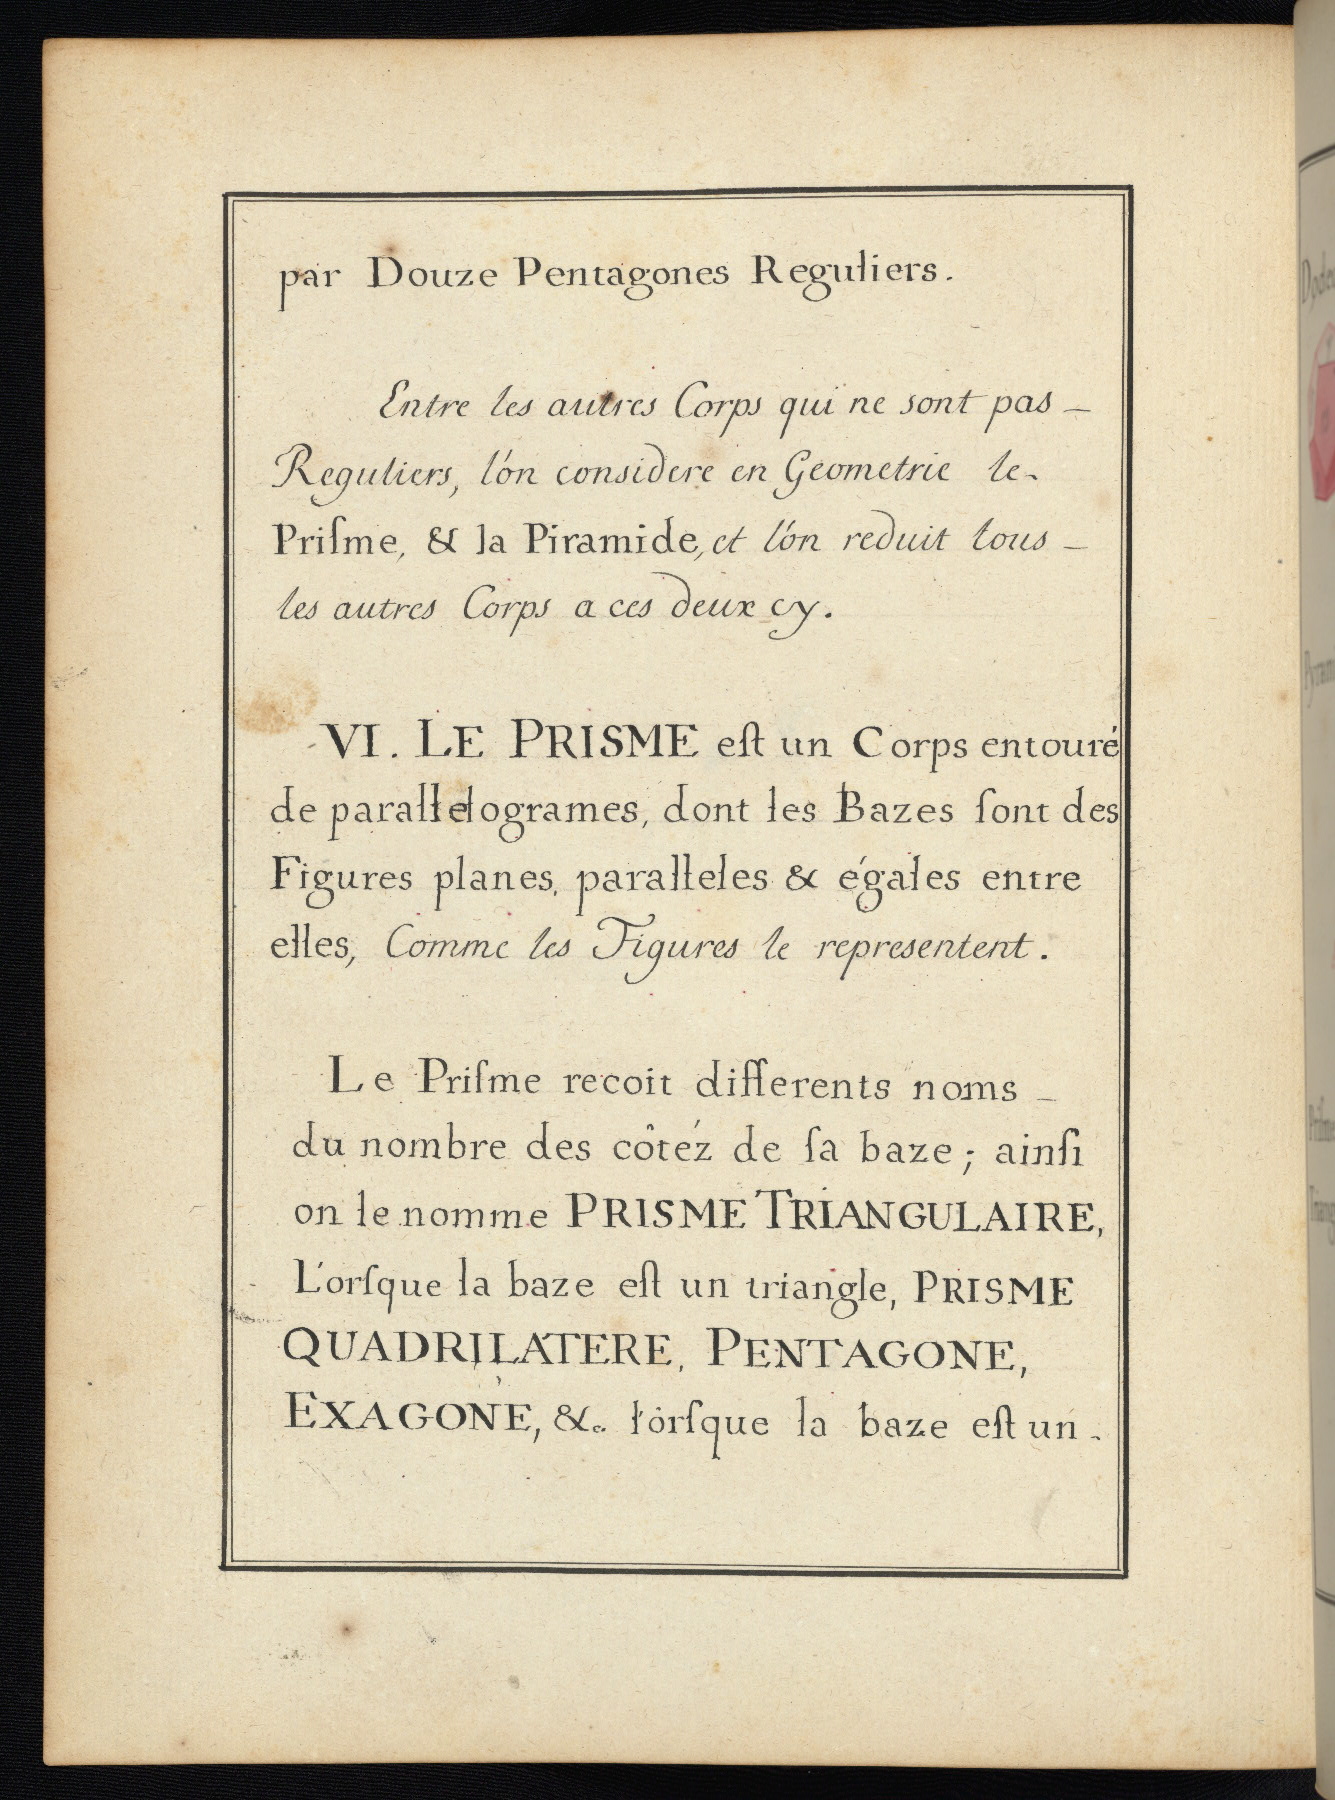 par Douze Pentagones Reguliers.
Entre les autres Corps qui ne sont pas –
Reguliers, l'on considere en Geometrie le -
Priſme, & la Piramide, et l'on reduit tous –
les autres Corps a ces deux cy.
VI. LE PRISME eſt un Corps entouré
de parallelogrames, dont les Bazes ſont des
Figures planes, paralleles & égales entre
elles, Comme les Figures le representent.
Le Priſme recoit differents noms –
du nombre des côtéz de ſa baze; ainſi
on le nomme PRISME TRIANGULAIRE,
L'orſque la baze eſt un triangle, PRISME
QUADRILATERE, PENTAGONE,
EXAGONE, &c. l'orſque la baze eſt un -